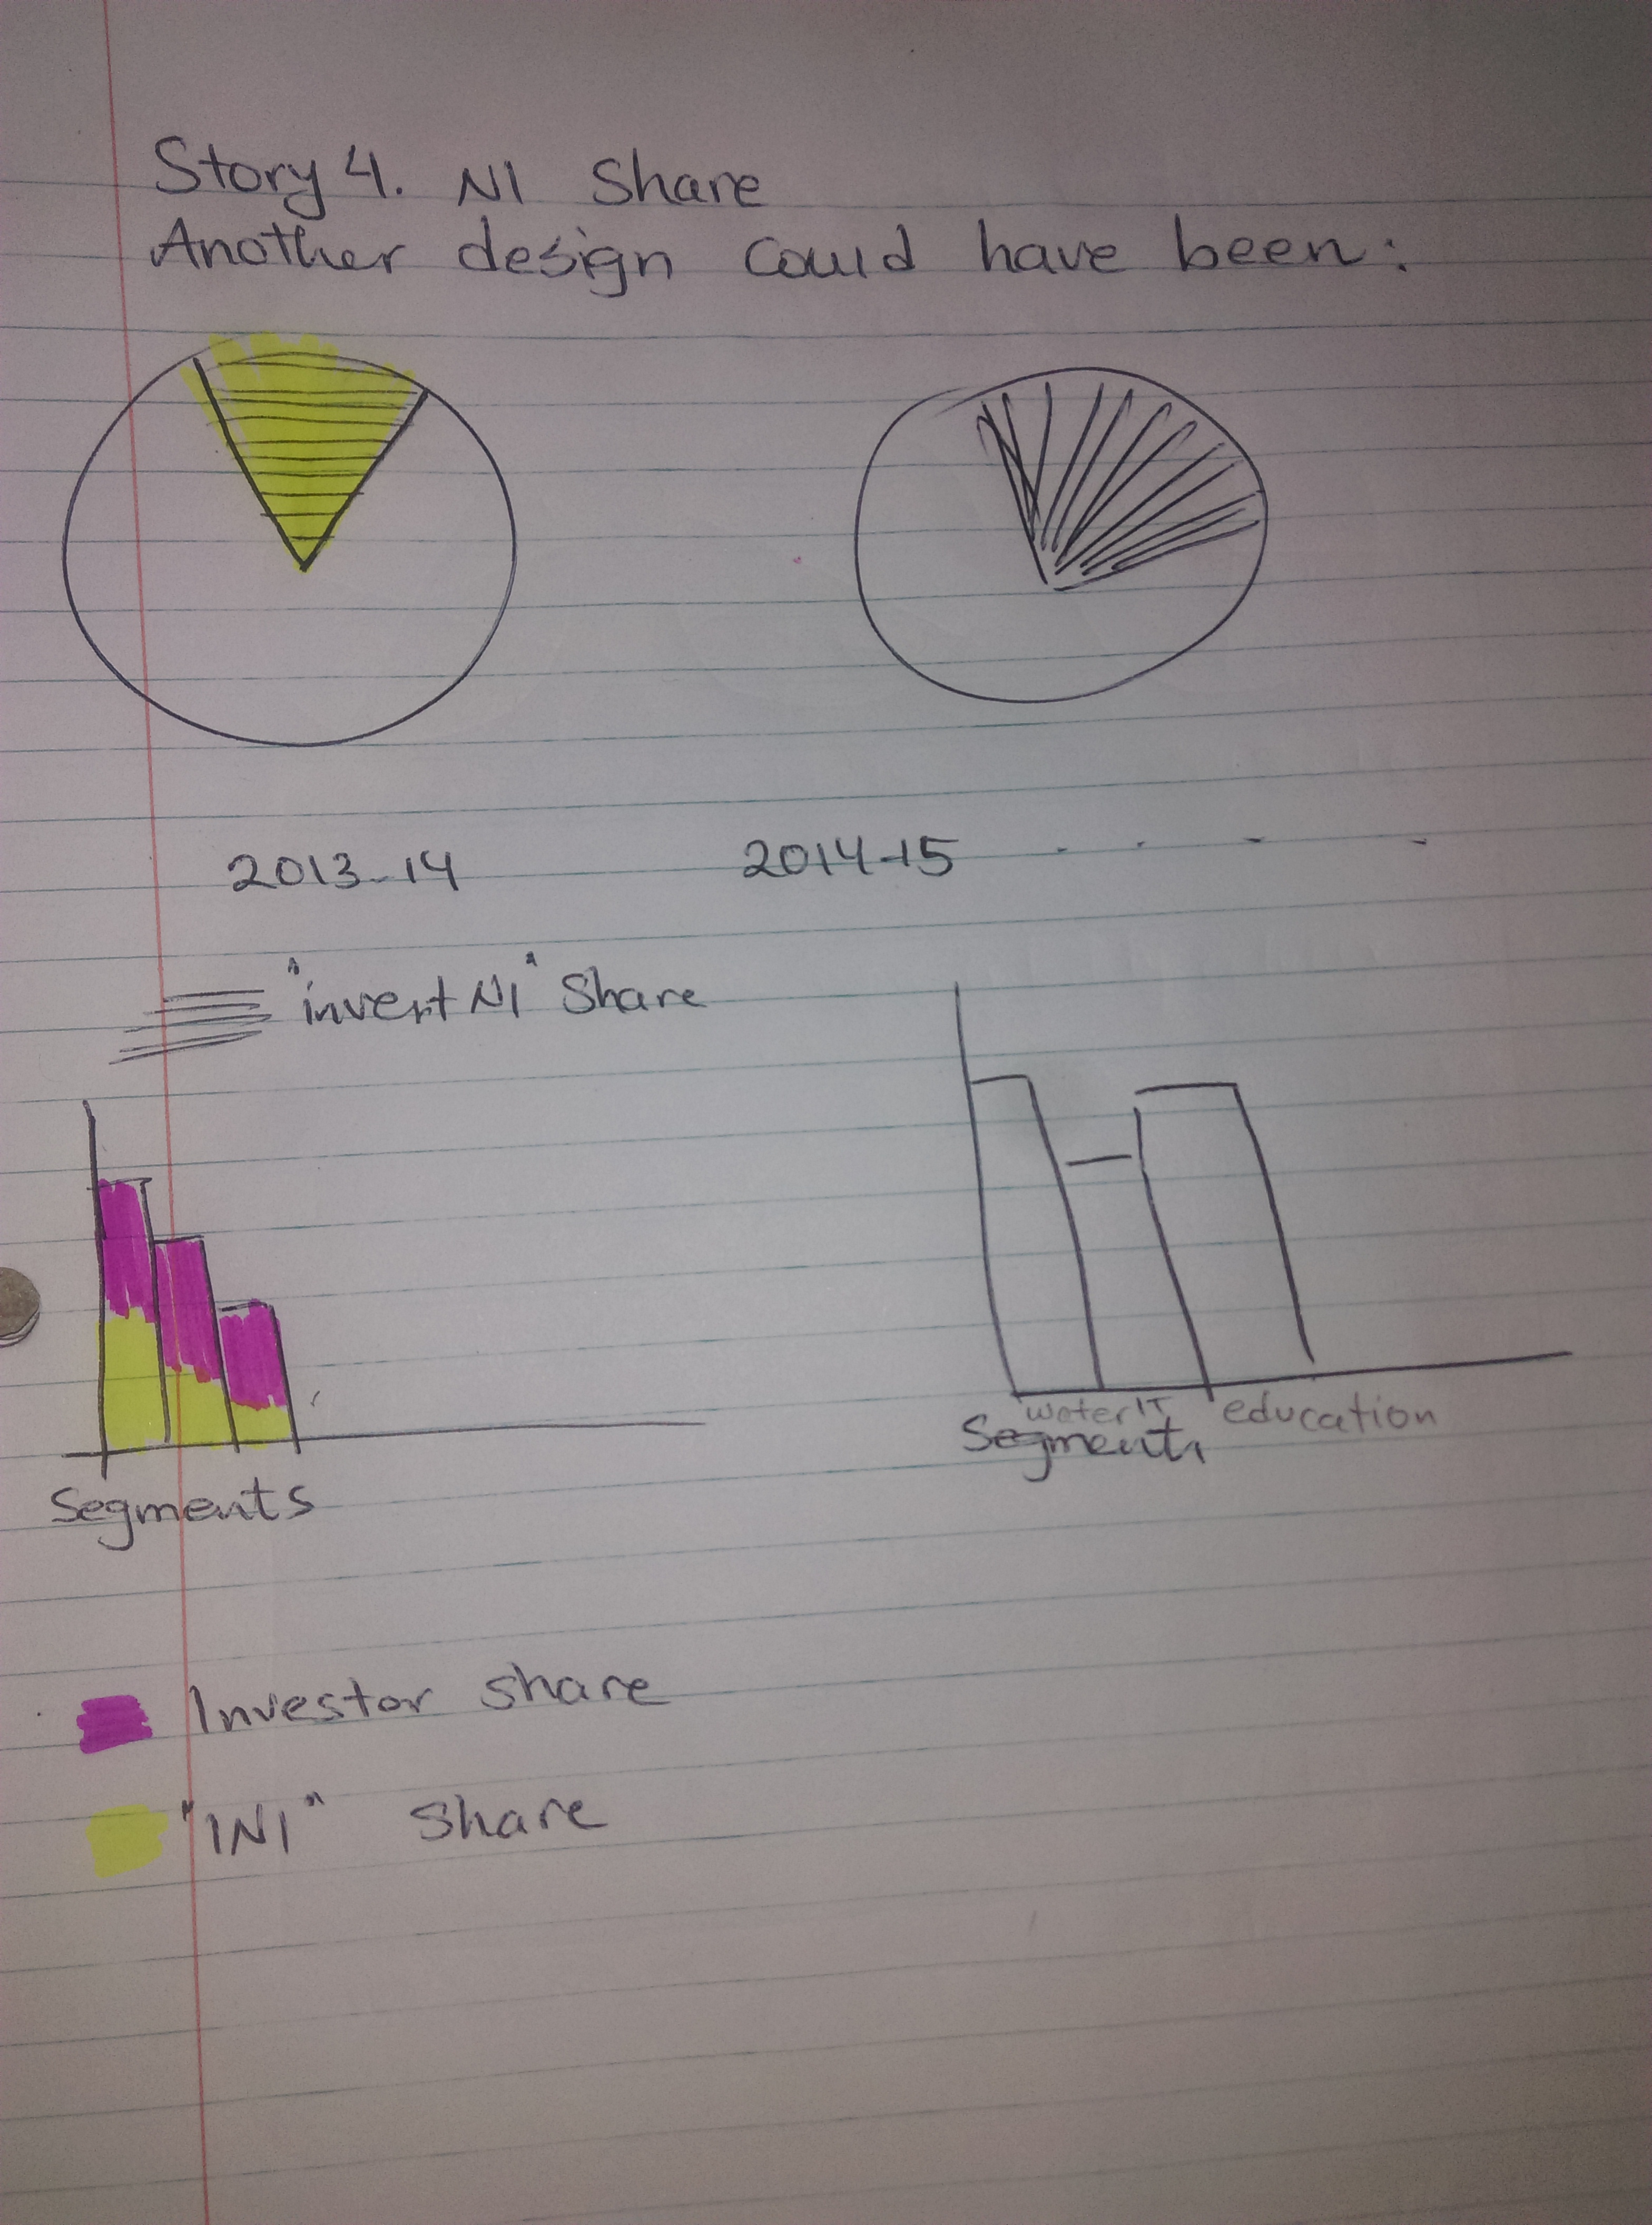 Story 4. NI Share
Another design could have been:
2013-14
2014-15 . . - -
"invert NI" Share
water IT education
Segments
Segments
Investor share
"INI" share